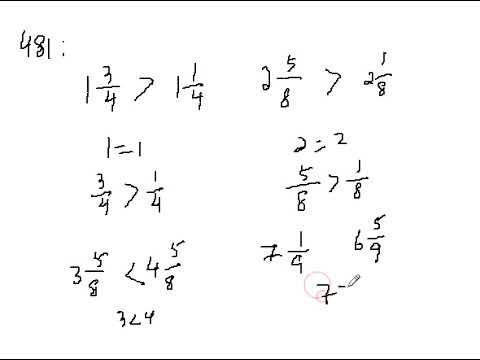 481:
1 3/4 > 1 1/4
2 5/8 > 2 1/8
1 = 1
2 = 2
3/4 > 1/4
5/8 > 1/8
3 5/8 < 4 5/8
7 1/9 6 5/9
3 < 4
7